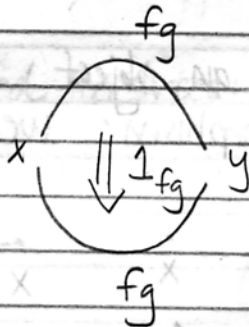 fg
x 1_fg y
fg